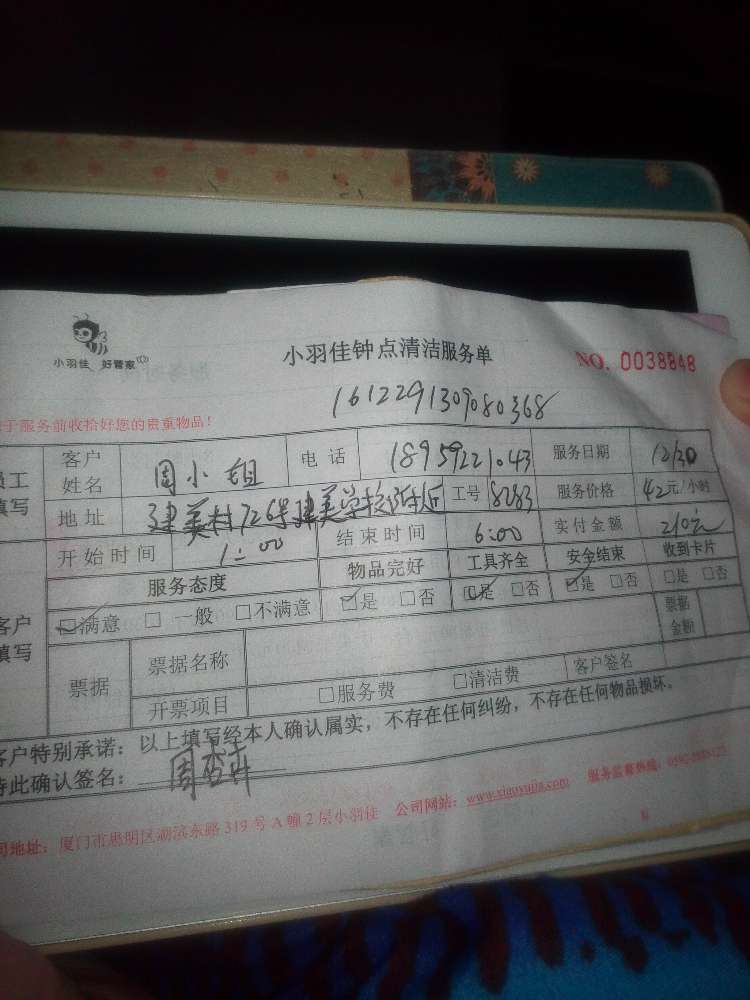 小羽佳 好管家
小羽佳钟点清洁服务单
NO. 0038848
1612291309080368
于服务前收拾好您的贵重物品！
员工填写
客户姓名 周小姐 电话 18959221043 服务日期 12/30
地址 建美村726号建美学校附近 工号 8283 服务价格 42元/小时
开始时间 1:00 结束时间 6:00 实付金额 210元
客户填写
服务态度 物品完好 工具齐全 安全结束 收到卡片
☑满意 □一般 □不满意 ☑是 □否 ☑是 □否 ☑是 □否 □是 □否
票据 票据名称 票据金额
开票项目 □服务费 □清洁费 客户签名
客户特别承诺：以上填写经本人确认属实，不存在任何纠纷，不存在任何物品损坏。
特此确认签名：
司地址：厦门市思明区湖滨东路319号A幢2层小羽佳 公司网站：www.xiaoyujia.com 服务监督热线：